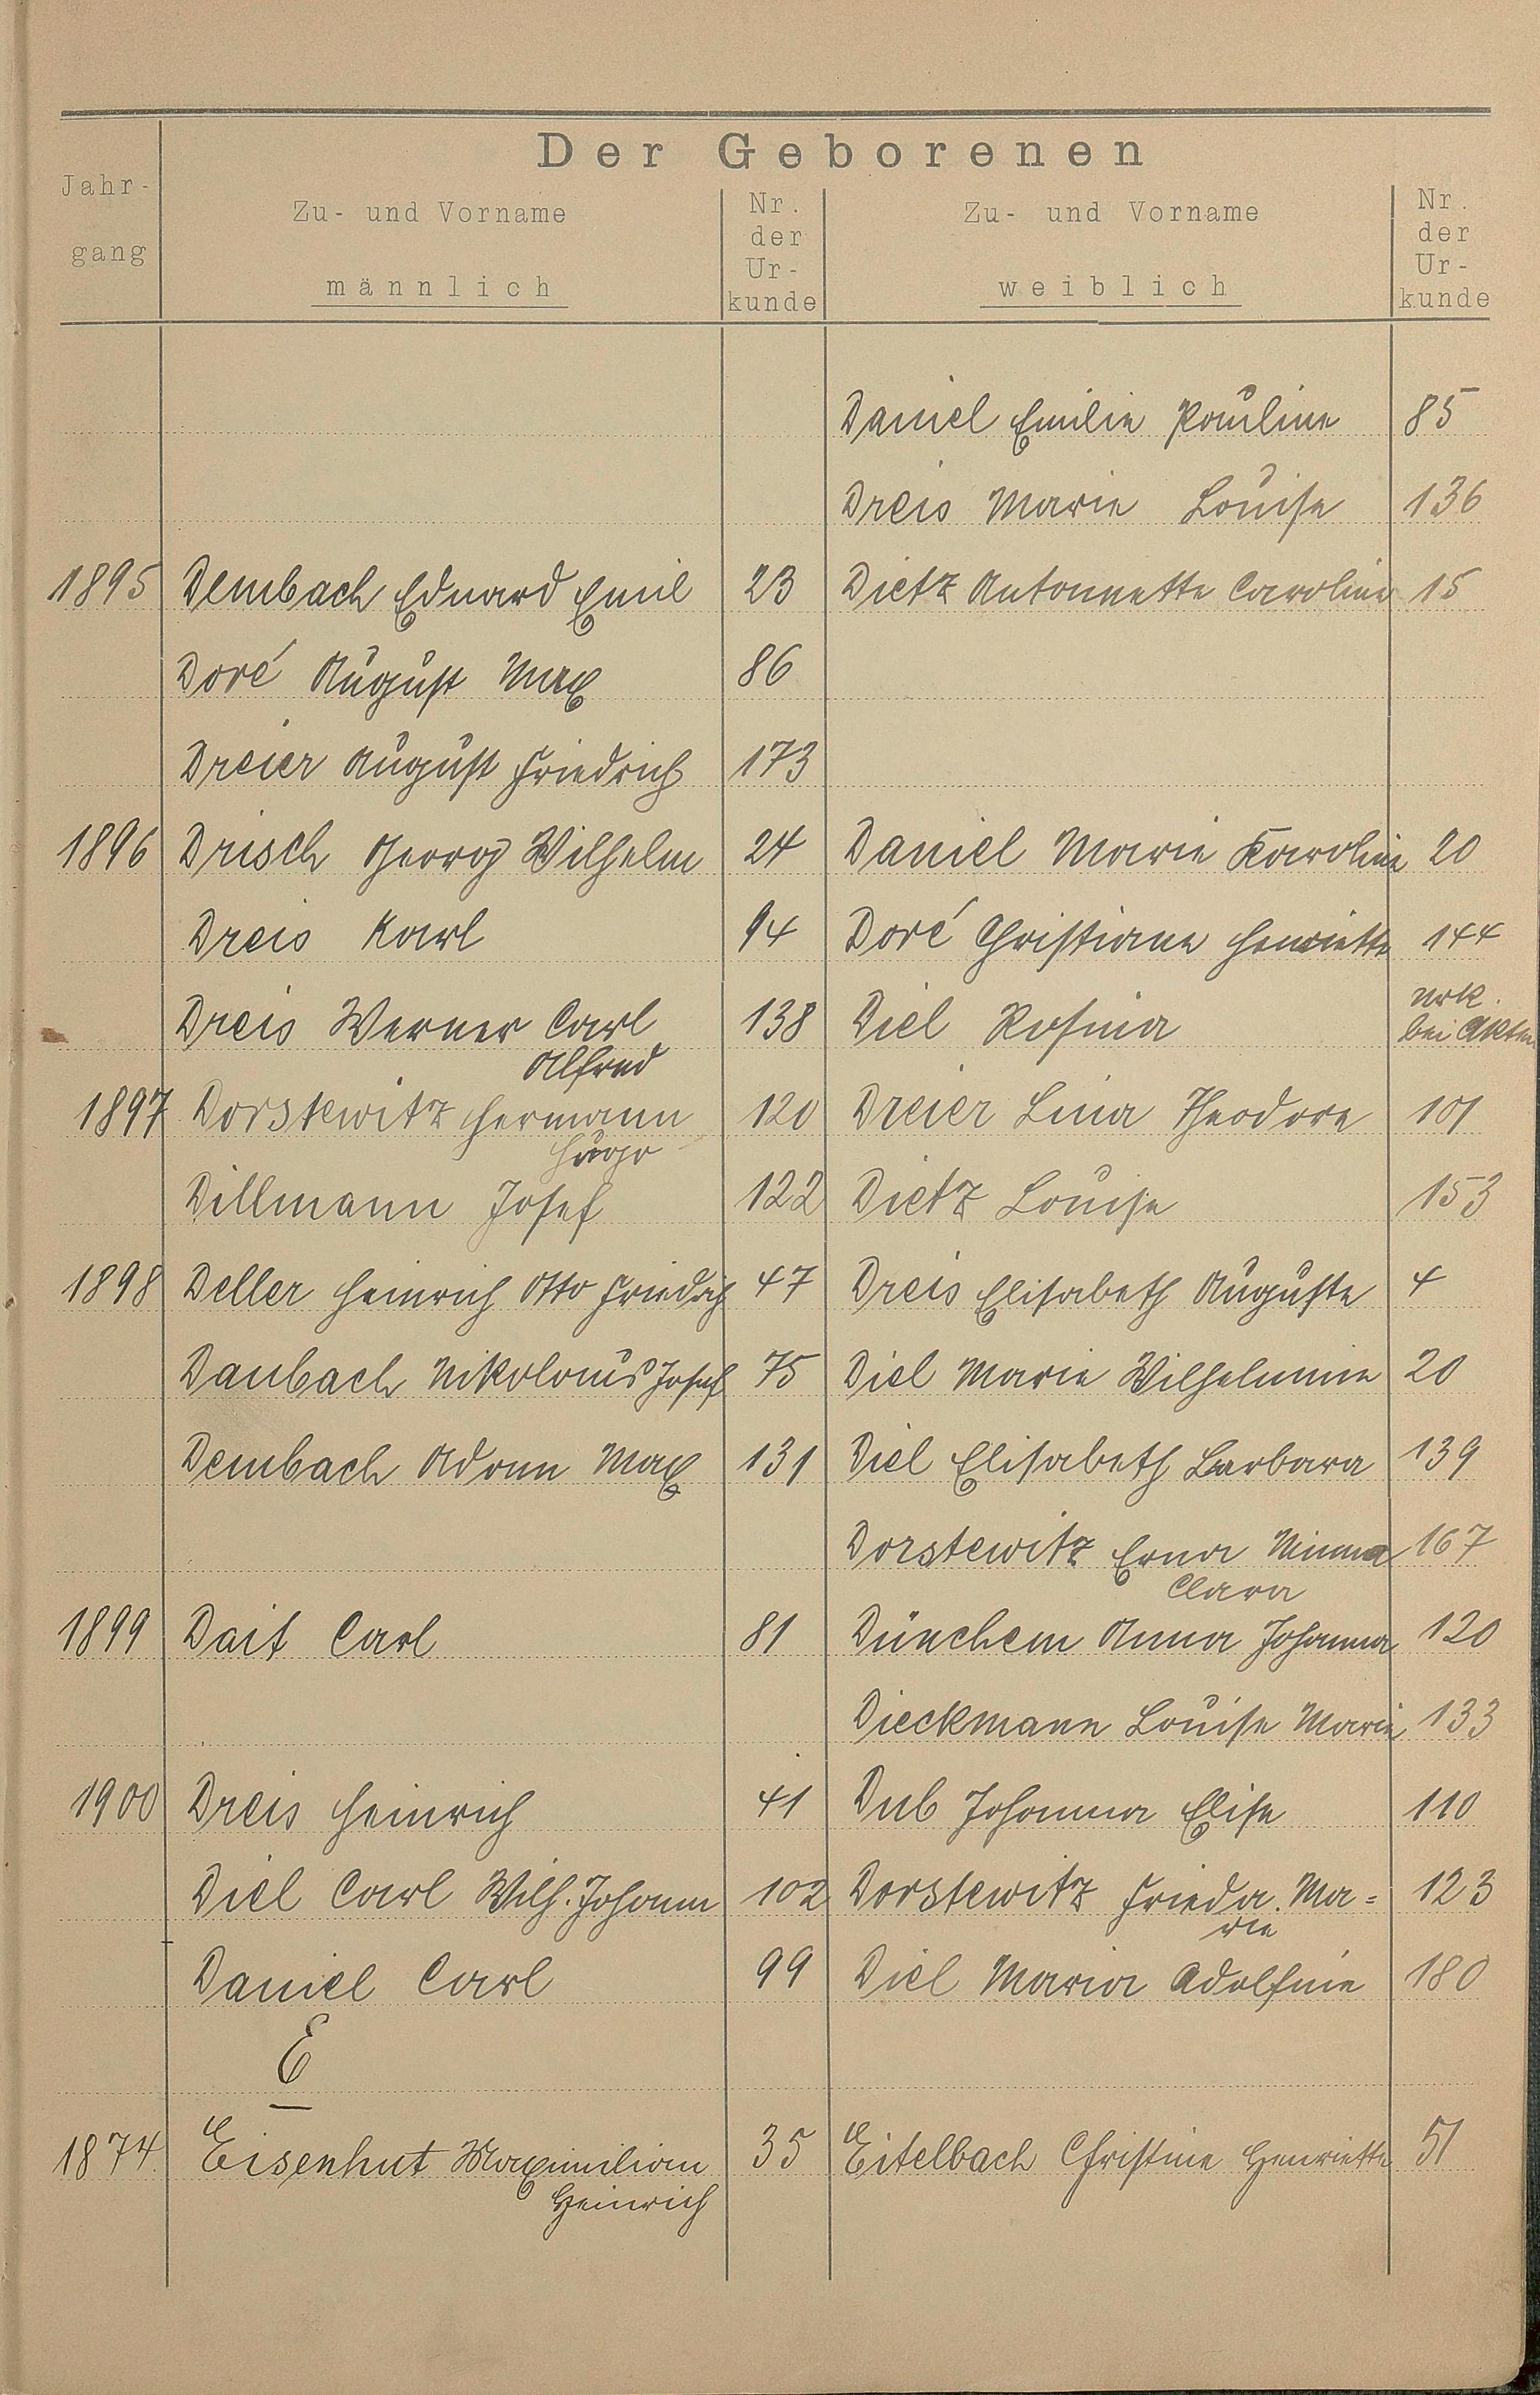 Der Geborenen
Jahr-
gang
Zu- und Vorname
männlich
Nr.
der
Ur-
kunde
Zu- und Vorname
weiblich
Nr.
der
Ur-
kunde
Daniel Emilie Pauline 85
Dreis Marie Louise 136
1895 Dembach Eduard Emil 23 Dietz Antonnette Caroline 15
Doré August Max 86
Dreier August Friedrich 173
1896 Drisch Georg Wilhelm 24 Daniel Marie Karoline 20
Dreis Karl 94 Doré Christiane Henriette 144
Dreis Werner Carl 138 Diel Rosina Urk.
Alfred bei Akten
1897 Dorstewitz Hermann 120 Dreier Lina Theodore 101
Hugo
Dillmann Josef 122 Dietz Louise 153
1898 Deller Heinrich Otto Friedrich 47 Dreis Elisabeth Auguste 4
Daubach Nikolaus Josef 75 Diel Marie Wilhelmine 20
Dembach Adam Max 131 Diel Elisabeth Barbara 139
Dorstewitz Erna Minna 167
Clara
1899 Dait Carl 81 Dünchem Anna Johanna 120
Dieckmann Louise Marie 133
1900 Dreis Heinrich 41 Dub Johanna Elise 110
Diel Carl Wilh. Johann 102 Dorstewitz Frieda Ma= 123
rie
Daniel Carl 99 Diel Maria Adolfine 180
E
1874 Eisenhut Maximilian 35 Eitelbach Christine Henriette 51
Heinrich